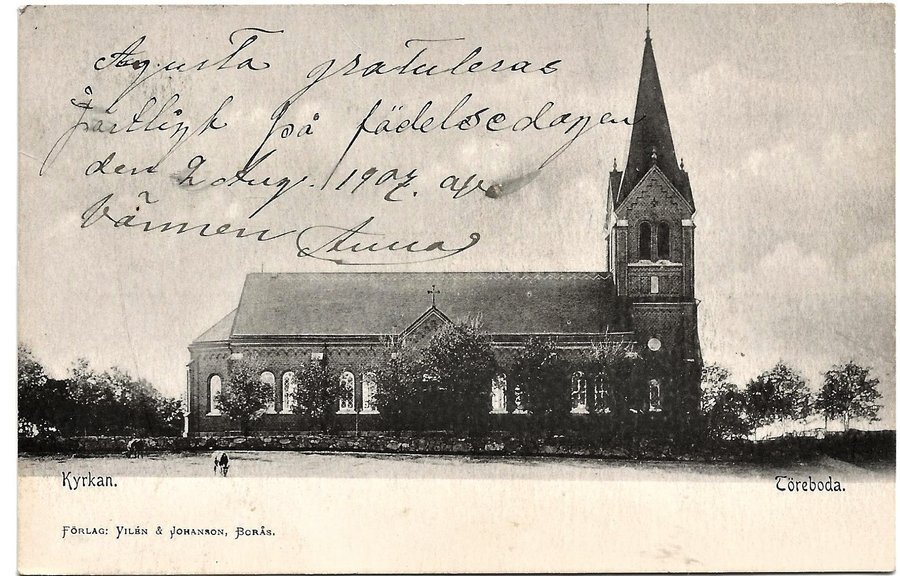 Agusta gratuleras
hjärtligt på födelsedagen
den 2 Aug. 1907. af
Vännen Anna
Kyrkan.
Töreboda.
Förlag: Vilén & Johanson, Borås.